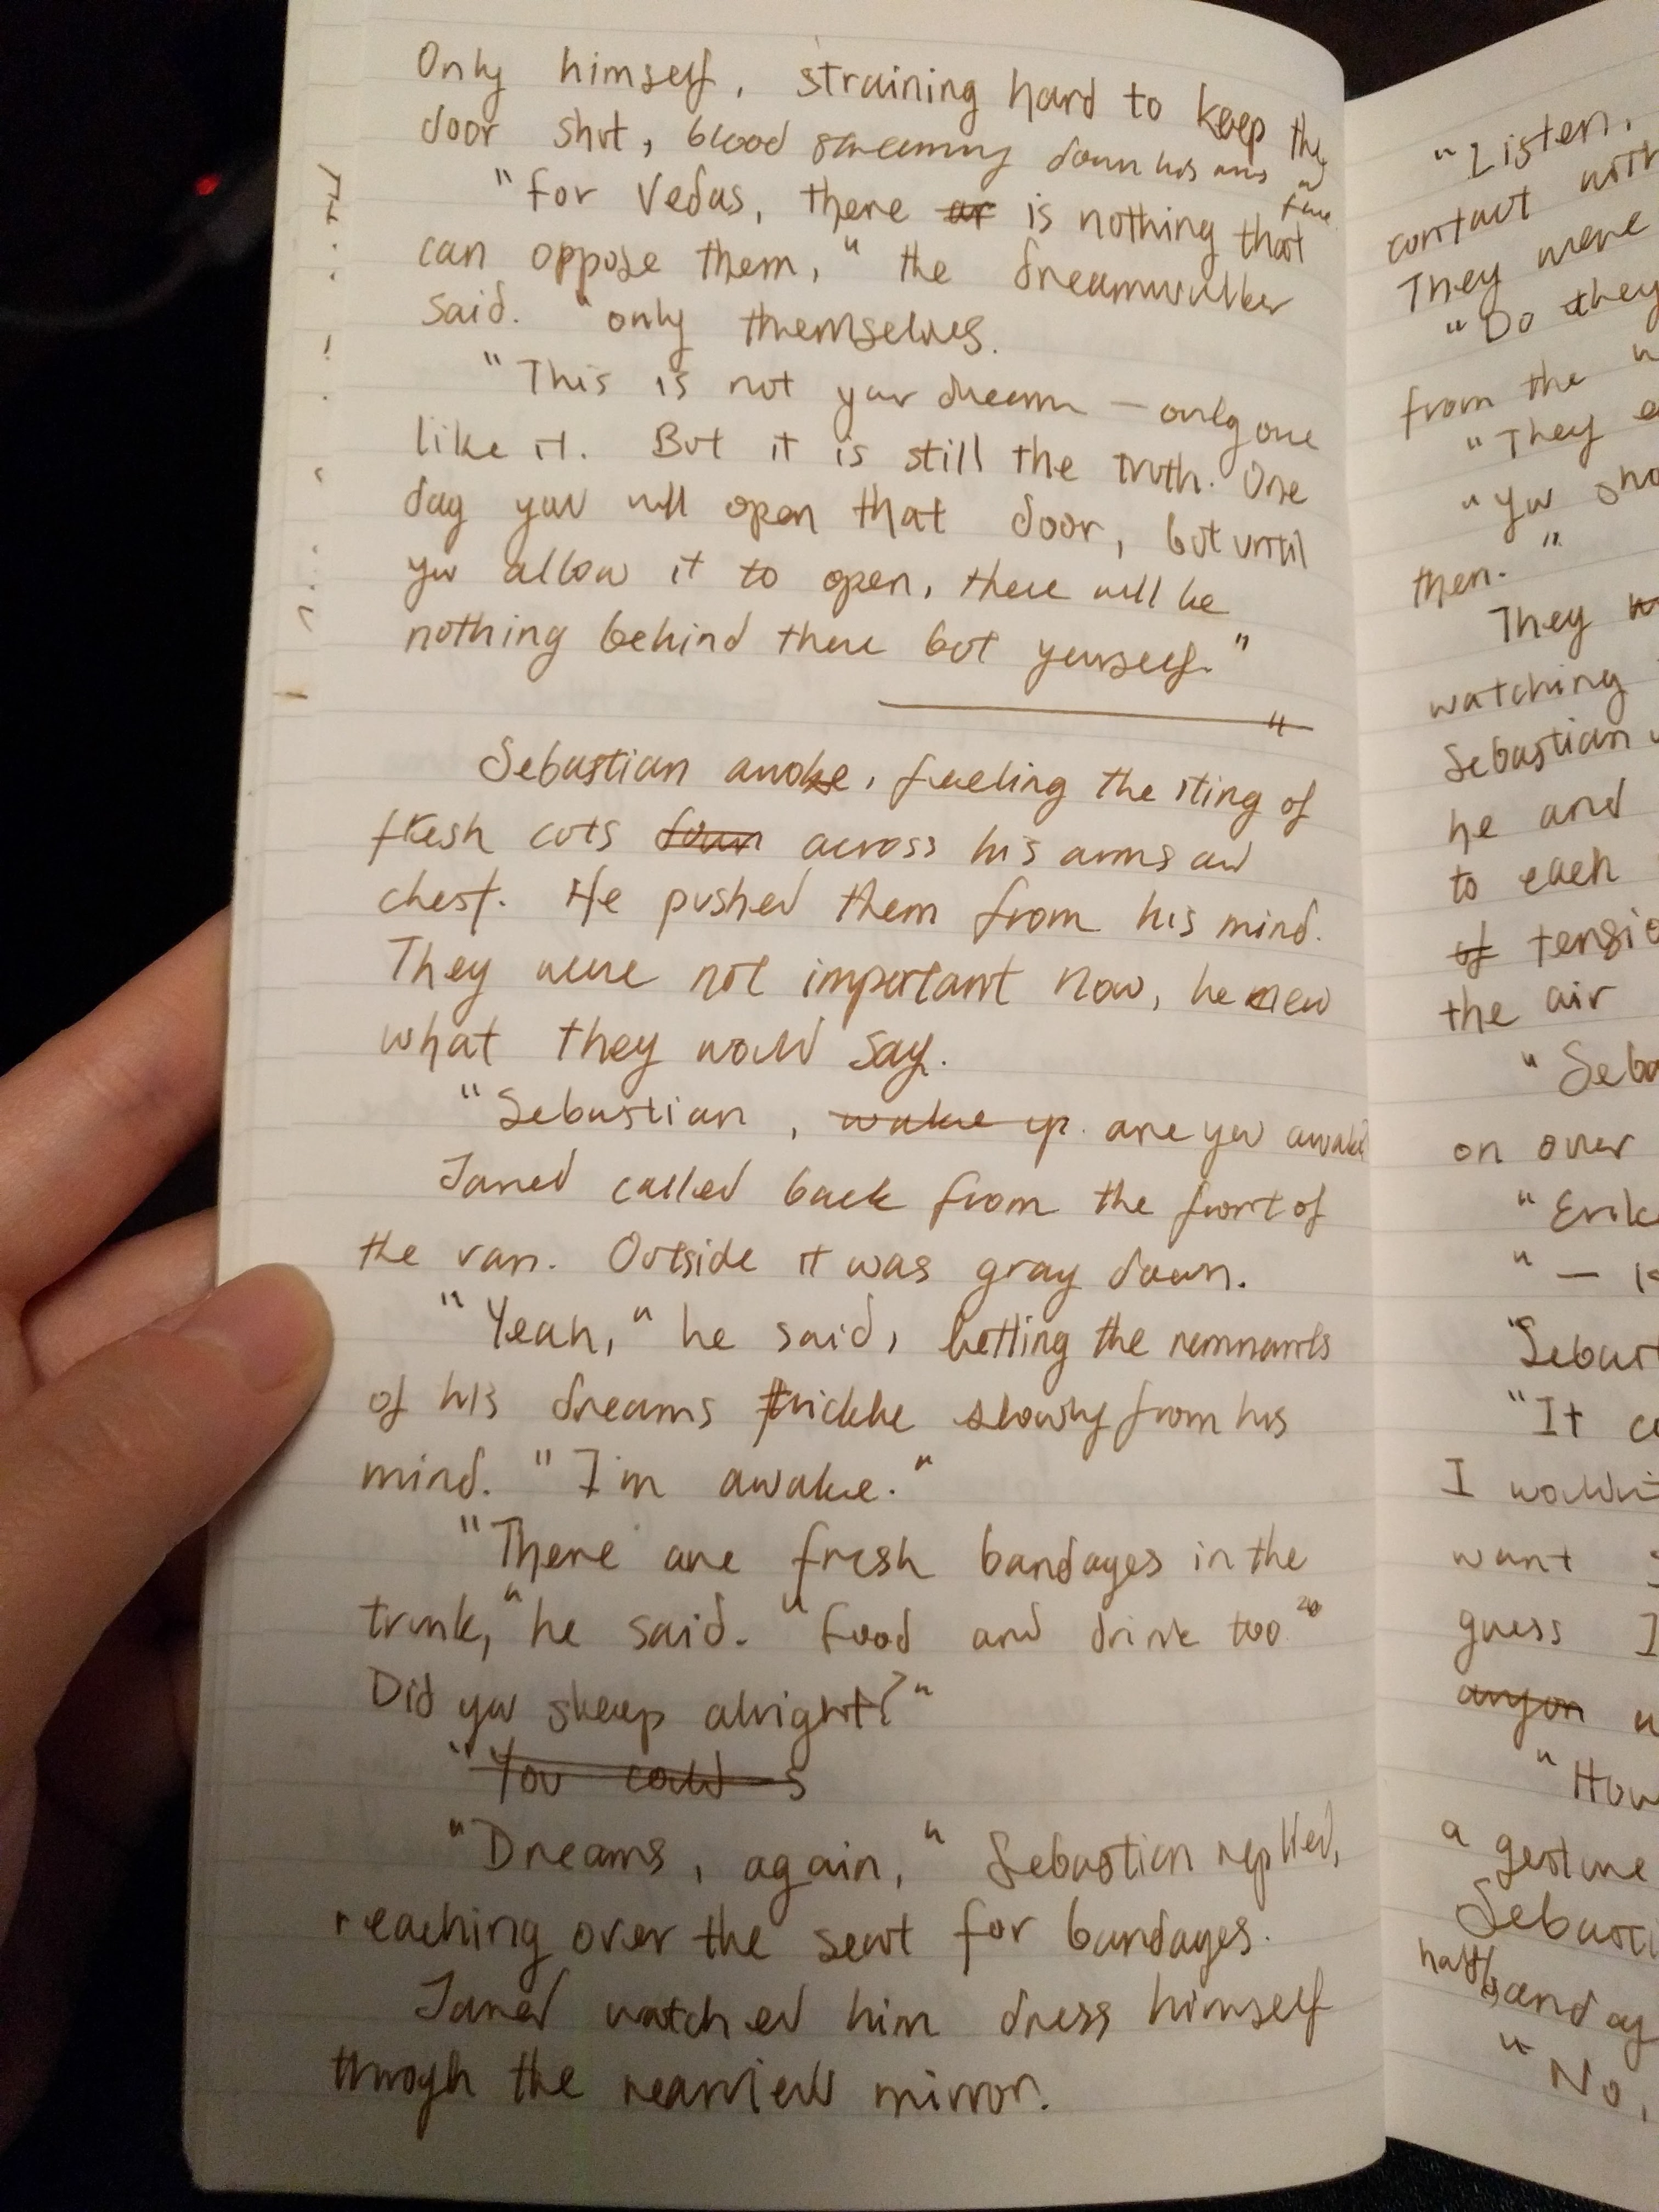 Only himself, straining hard to keep the
door shut, blood streaming down his arms and
face
"For Vedas, there ar is nothing that
can oppose them," the dreamwalker
said. "only themselves.
"This is not your dream — only one
like it. But it is still the truth. One
day you will open that door, but until
you allow it to open, there will be
nothing behind there but yourself."
Sebastian awoke, feeling the sting of
fresh cuts down across his arms and
chest. He pushed them from his mind.
They were not important now, he knew
what they would say.
"Sebastian, wake up are you awake
Jared called back from the front of
the van. Outside it was gray dawn.
"Yeah," he said, letting the remnants
of his dreams trickle slowly from his
mind. "I'm awake."
"There are fresh bandages in the
trunk," he said. "Food and drink too
Did you sleep alright?"
"You could s
"Dreams, again," Sebastian replied,
reaching over the seat for bandages.
Jared watched him dress himself
through the rearview mirror.
"Listen,
contact with
They were
"Do they
from the
"They
"You
then."
They
watching
Sebastian
he and
to each
of
the air
on over
"It
I
want
guess I
a gesture
"No,